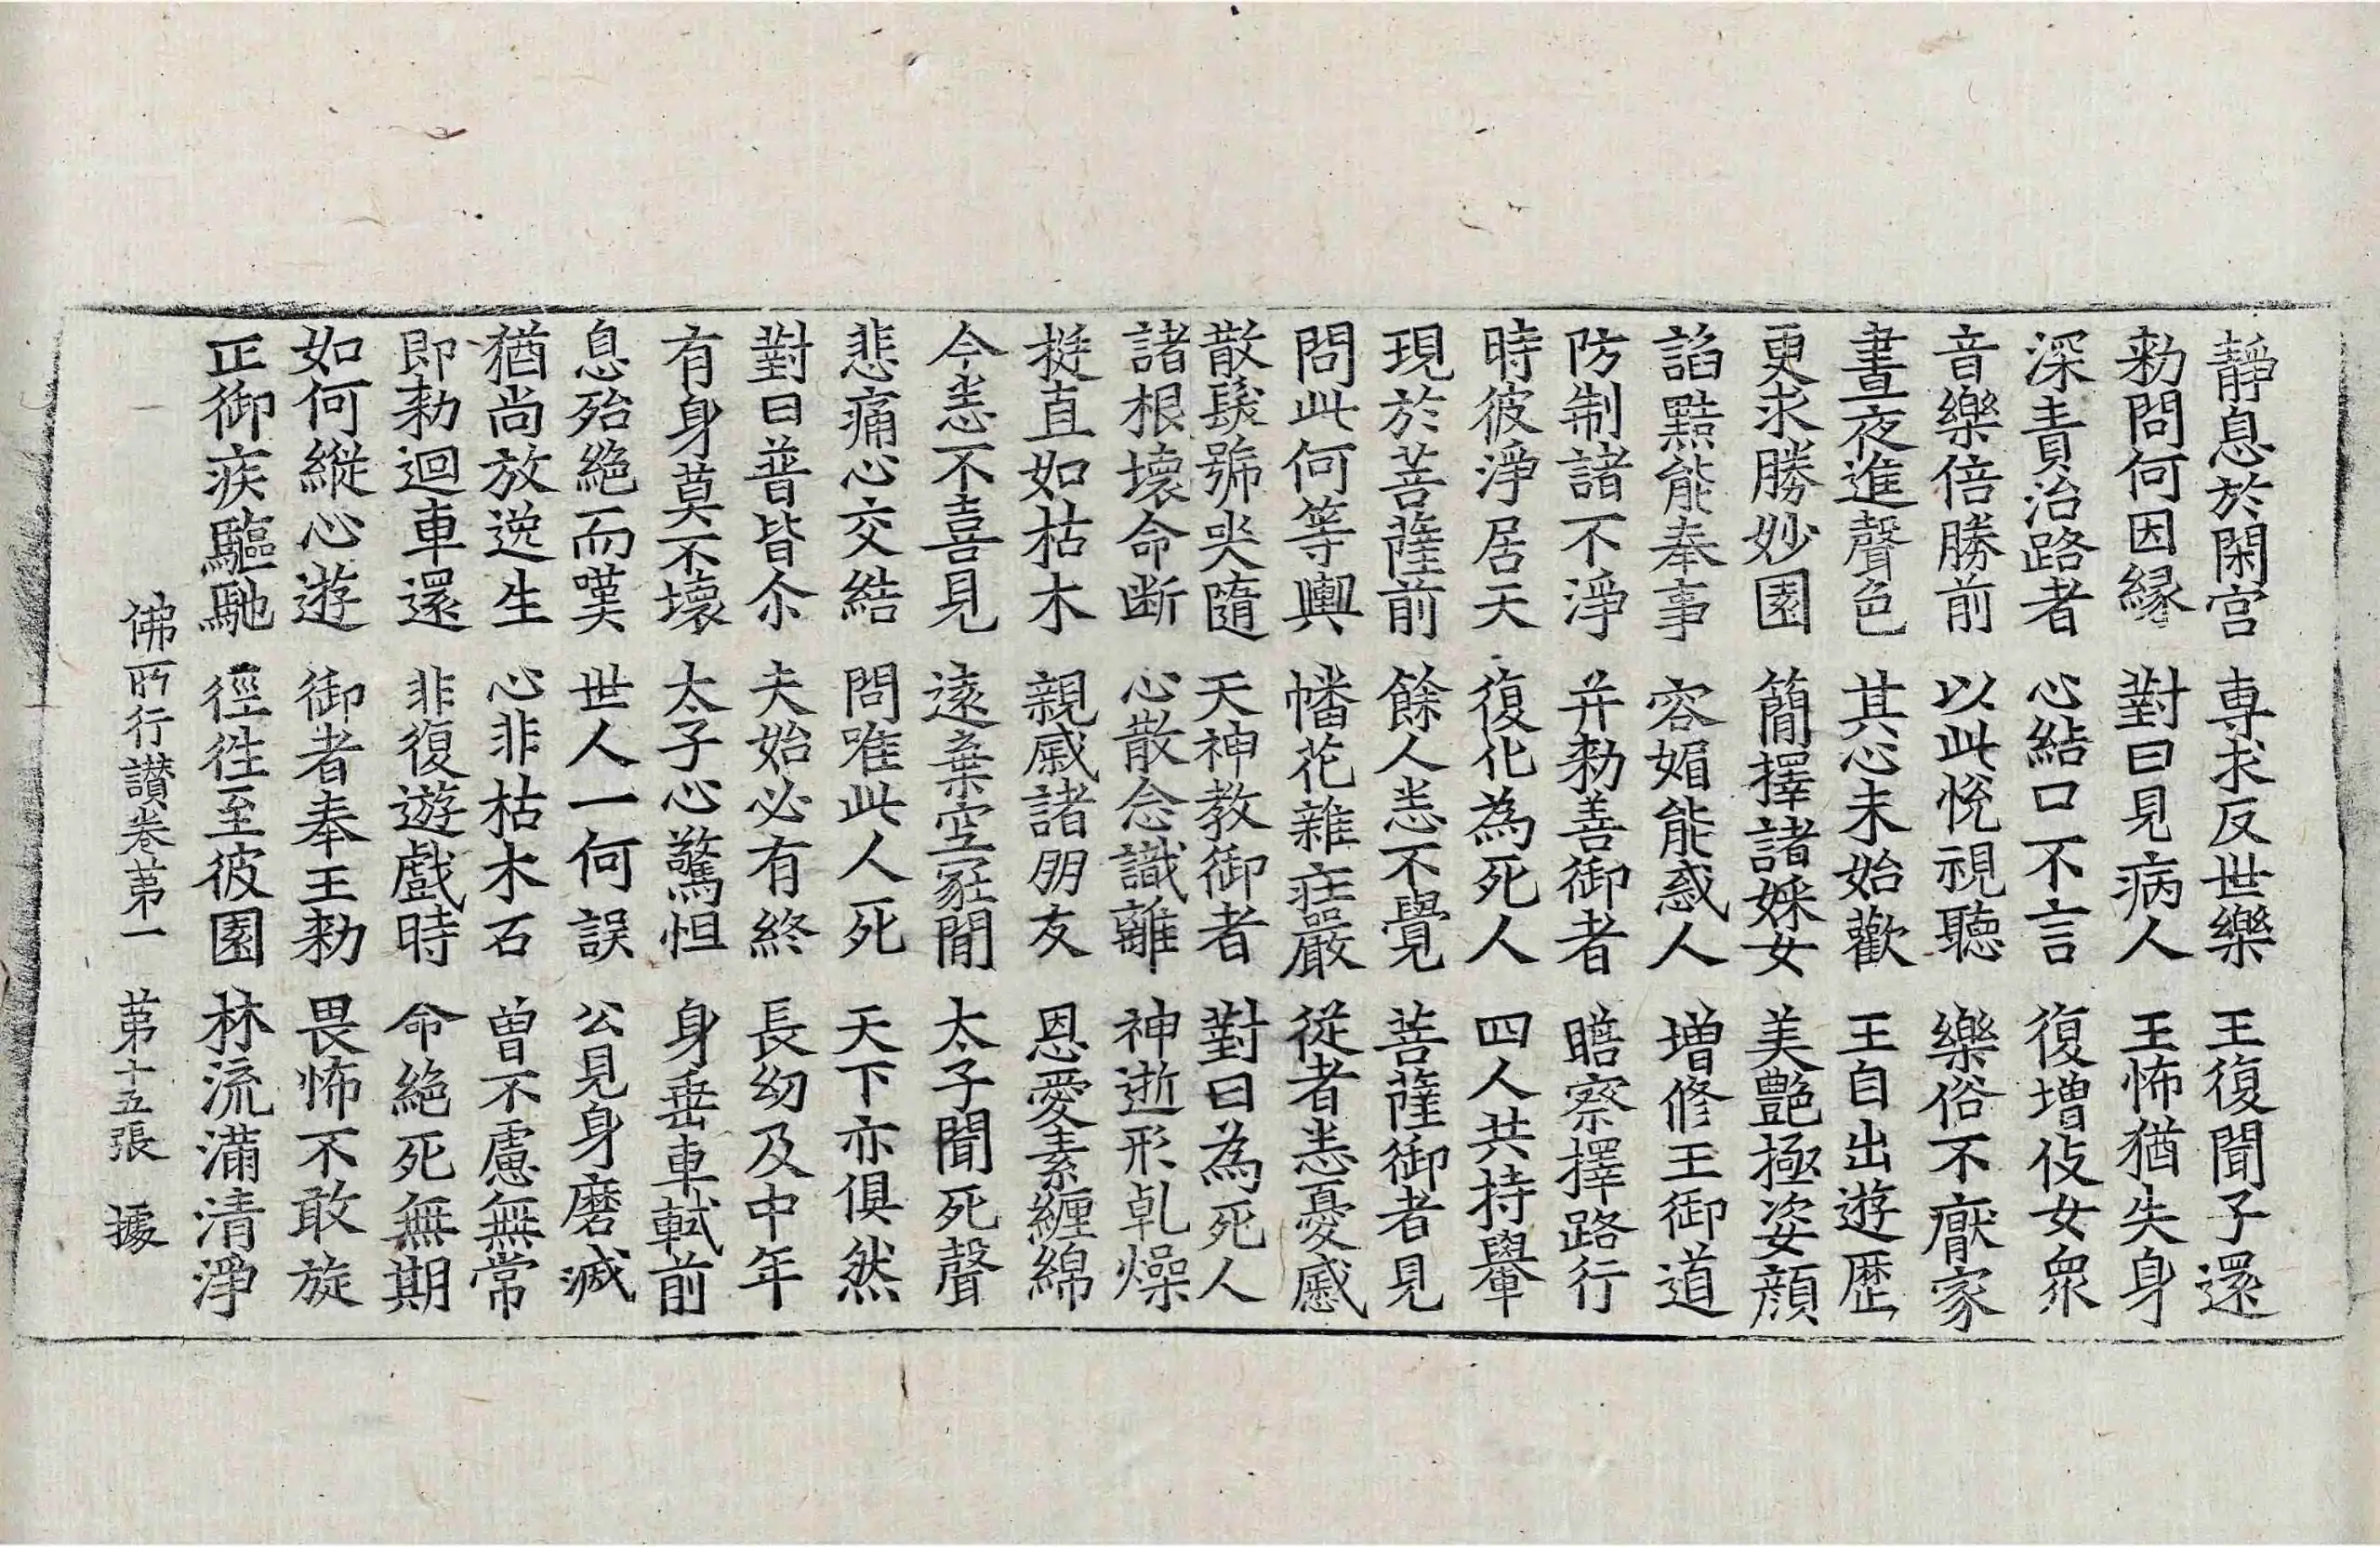 靜息於閑宮 專求反世樂 王復聞子還
勑問何因緣 對曰見病人 王怖猶失身
深責治路者 心結口不言 復增伎女衆
音樂倍勝前 以此悅視聽 樂俗不猒家
晝夜進聲色 其心未始歡 王自出遊歷
更求勝妙園 簡擇諸婇女 美艶極姿顏
諂黠能奉事 容媚能惑人 增修王御道
防制諸不淨 并勑善御者 瞻察擇路行
時彼淨居天 復化為死人 四人共持轝
現於菩薩前 餘人悉不覺 菩薩御者見
問此何等輿 幡花雜莊嚴 從者悉憂慼
散髮號哭隨 天神教御者 對曰為死人
諸根壞命断 心散念識離 神逝形乹燥
挺直如枯木 親戚諸朋友 恩愛素纏綿
今悉不喜見 遠棄空冢間 太子聞死聲
悲痛心交結 問唯此人死 天下亦俱然
對曰普皆尒 夫始必有終 長幼及中年
有身莫不壞 太子心驚怛 身垂車軾前
息殆絕而嘆 世人一何誤 公見身磨滅
猶尚放逸生 心非枯木石 曾不慮無常
即勑迴車還 非復遊戲時 命絕死無期
如何縱心遊 御者奉王勑 畏怖不敢旋
正御疾驅馳 徑徃至彼園 林流滿清淨
佛所行讃卷第一 第十五張 據